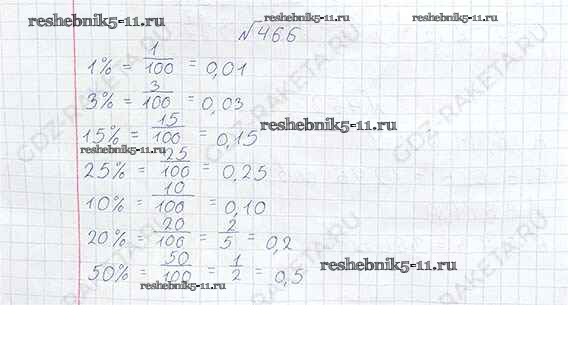 reshebnik5-11.ru reshebnik5-11.ru reshebnik5-11.ru
№466
1% = 1/100 = 0,01
3% = 3/100 = 0,03
15% = 15/100 = 0,15 reshebnik5-11.ru
reshebnik5-11.ru
25% = 25/100 = 0,25
10% = 10/100 = 0,10
20% = 20/100 = 2/5 = 0,2
50% = 50/100 = 1/2 = 0,5 reshebnik5-11.ru
reshebnik5-11.ru
GDZ-RAKETA.RU
GDZ-RAKETA.RU
GDZ-RAKETA.RU
GDZ-RAKETA.RU